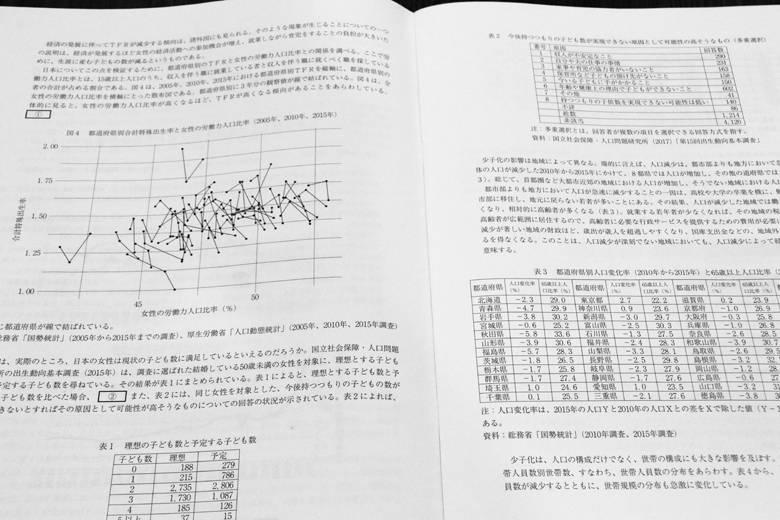 経済の発展に伴ってＴＦＲが減少する傾向は、諸外国にも見られる。そのような現象が生じることについての一つ
の説明は、経済が発展するほど女性の経済活動への参加機会が増え、就業しながら育児をすることの負担が大きいた
めに、生涯に産む子どもの数が減るというものである。
日本についてこの点を検証するために、都道府県別のＴＦＲと女性の労働力人口比率との関係を調べる。ここで労
働力人口比率とは、15歳以上人口のうち、収入を伴う職に就業している者と収入を伴う職に就くべく職を探している
者の合計が占める割合である。図４は、2005年、2010年、2015年における都道府県別ＴＦＲを縦軸に、都道府県別の
女性の労働力人口比率を横軸にとった散布図である。都道府県別に３年分の観察値が線で結ばれている。図４は、全
体的に見ると、女性の労働力人口比率が高くなるほど、ＴＦＲが高くなる傾向があることをあらわしている。
①
図４　都道府県別合計特殊出生率と女性の労働力人口比率（2005年、2010年、2015年）
2.00
1.75
1.50
1.25
1.00
合計特殊出生率
45
50
女性の労働力人口比率（％）
じ都道府県が線で結ばれている。
務省「国勢統計」（2005年から2015年までの調査）、厚生労働省「人口動態統計」（2005年、2010年、2015年調査）
は、実際のところ、日本の女性は現状の子ども数に満足しているといえるのだろうか。国立社会保障・人口問題
所の出生動向基本調査（2015年）は、調査に選ばれた結婚している50歳未満の女性を対象に、理想とする子ども
予定する子ども数を尋ねている。その結果が表１にまとめられている。表１によると、理想とする子ども数と予
子ども数を比べた場合、②　また、表２には、同じ女性を対象とした、今後持つつもりの子どもの数が
きないとすればその原因として可能性が高そうなものについての回答の状況が示されている。表２によれば、
表１　理想の子ども数と予定する子ども数
子ども数　理想　予定
0　188　279
1　215　786
2　2,735　2,806
3　1,730　1,087
4　185　126
5以上　37　15
表２　今後持つつもりの子ども数が実現できない原因として可能性の高そうなもの（多重選択）
番号　原因　回答数
1　収入が不安定なこと　290
2　自分や夫の仕事の事情　231
3　家事や育児の協力者がいないこと　163
4　保育所など子どもの預け先がないこと　150
5　今いる子どもに手がかかること　156
6　年齢や健康上の理由で子どもができないこと　602
7　その他　41
8　持つつもりの子供数を実現できない可能性は低い　140
不詳　86
総数　1,214
非該当　4,120
注：多重選択とは、回答者が複数の項目を選択できる回答方式を指す。
資料：国立社会保障・人口問題研究所（2017）「第15回出生動向基本調査」
少子化の影響は地域によって異なる。端的に言えば、人口減少は、都市部よりも地方において
体の人口が減少した2010年から2015年にかけて、８都県では人口が増加し、その他の道府県では
３）。総じて、首都圏など大都市近郊の地域における人口が増加し、そうでない地域における人
都市部よりも地方において人口が急速に減少することの一因は、高校や大学の卒業を機に、
市部に移住し、地元に戻らない若者が多いことにある。その結果、人口が減少した地域では働
くなり、相対的に高齢者が多くなる（表３）。就業する若年者が少なくなれば、その地域の税
高齢者が広範囲に居住するので、高齢者に必要な行政サービスを提供するための費用が必要
減少が著しい地域の財政ほど、歳出が歳入を超過しやすくなり、国庫支出金などの、地域外
るを得なくなる。このことは、人口減少が深刻でない地域においても、人口減少によって経
意味する。
表３　都道府県別人口変化率（2010年から2015年）と65歳以上人口比率
都道府県　人口変化率（％）　65歳以上人口比率（％）　都道府県　人口変化率（％）　65歳以上人口比率（％）　都道府県　人口変化率（％）　65歳以上人口比率（％）
北海道　−2.3　29.0　東京都　2.7　22.2　滋賀県　0.2　23.9
青森県　−4.7　29.9　神奈川県　0.9　23.6　京都府　−1.0　26.9
岩手県　−3.8　30.2　新潟県　−3.0　29.7　大阪府　−0.3　25.8
宮城県　−0.6　25.2　富山県　−2.5　30.3　兵庫県　−1.0　26.8
秋田県　−5.8　33.6　石川県　−1.3　27.5　奈良県　−2.6　28.5
山形県　−3.9　30.6　福井県　−2.4　28.3　和歌山県　−3.9　30.7
福島県　−5.7　28.3　山梨県　−3.3　28.1　鳥取県　−2.6　29.5
茨城県　−1.8　26.5　長野県　−2.5　29.8　島根県　−3.2　32
栃木県　−1.7　25.8　岐阜県　−2.3　27.9　岡山県　−1.2　28.
群馬県　−1.7　27.4　静岡県　−1.7　27.6　広島県　−0.6　27
埼玉県　1.0　24.6　愛知県　1.0　23.5　山口県　−3.2　3
千葉県　0.1　25.5　三重県　−2.1　27.6　徳島県　−3.8　30
注：人口変化率は、2015年の人口Ｙと2010年の人口Ｘとの差をＸで除した値（Ｙ−Ｘ
ある。
資料：総務省「国勢統計」（2010年調査、2015年調査）
少子化は、人口の構成だけでなく、世帯の構成にも大きな影響を及ぼす。
帯人員数別世帯数、すなわち、世帯人員数の分布をあらわす。表４から、
員数が減少するとともに、世帯規模の分布も急激に変化している。